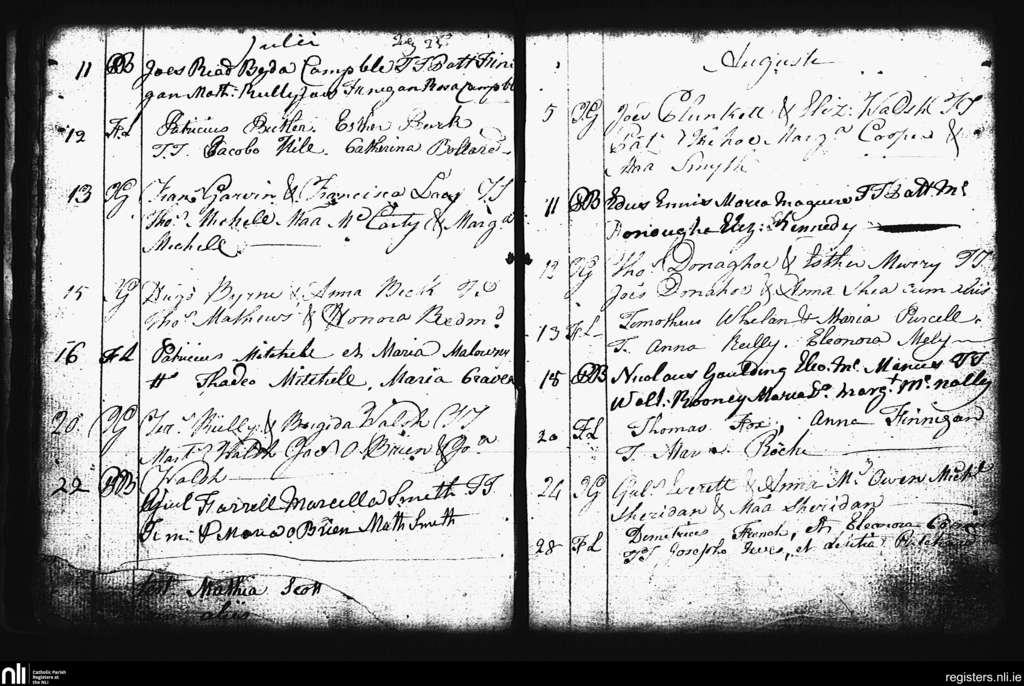 Julii
11 Joēs Read Byda Campble TT Batt Fine
gan Math: Rielly Jas Finegan Rosa Campbl
12 FL Patricius Butler. Esther Burk
T.T. Jacobo Kile. Catherina Bollard
13 Fran: Garvin & Francisca Lacy TT
Thos Michell Maa Mc Carty & Marg.a
Michell
15 Hugo Byrne & Anna Beck TT
Thos Mathews & Honora Redmd
16 FL Patricius Mitchele et Maria Malowny
tt Thadeo Mitchele, Maria Craven
20 Ter: Rielly & Brigida Walsh TT
Mart Walsh Joēs O Brien & Joa
Walsh
22 Farrell Marcella Smeth TT
Tim: & Maria o Brien Math Smeth
Mathia Scott
aliis
Auguste
5 Joēs Clunkett & Eliz: Walsh TT
Pat: Kehoe Marga Cooper &
Maa Smyth
11 Edus Ennis Marea Maguire TT Batt Mc
Donoughe Elez: Kennedy
12 Thos Donaghoe & Esther Murry TT
Joēs Donahoe & Anna Shea cum aliis
13 FL Timotheus Whelan & Maria Purcell
T. Anna Reilly. Eleonora Mely
18 Nicolaus Goulding Eleo: Mc Manus TT
Walt: Rooney Marea Do Margt Mc nally
20 FL Thomas Fox, Anna Finnegan
T. Mar Roche
24 Gul: Leverett & Anna Mc Owen Michl
Sheridan & Maa Sheridan
28 FL Demetrius French, et Eleonora
TT. Josepho Ives, et Letitia Pritchard
nli Catholic Parish
Registers at
the NLI
registers.nli.ie